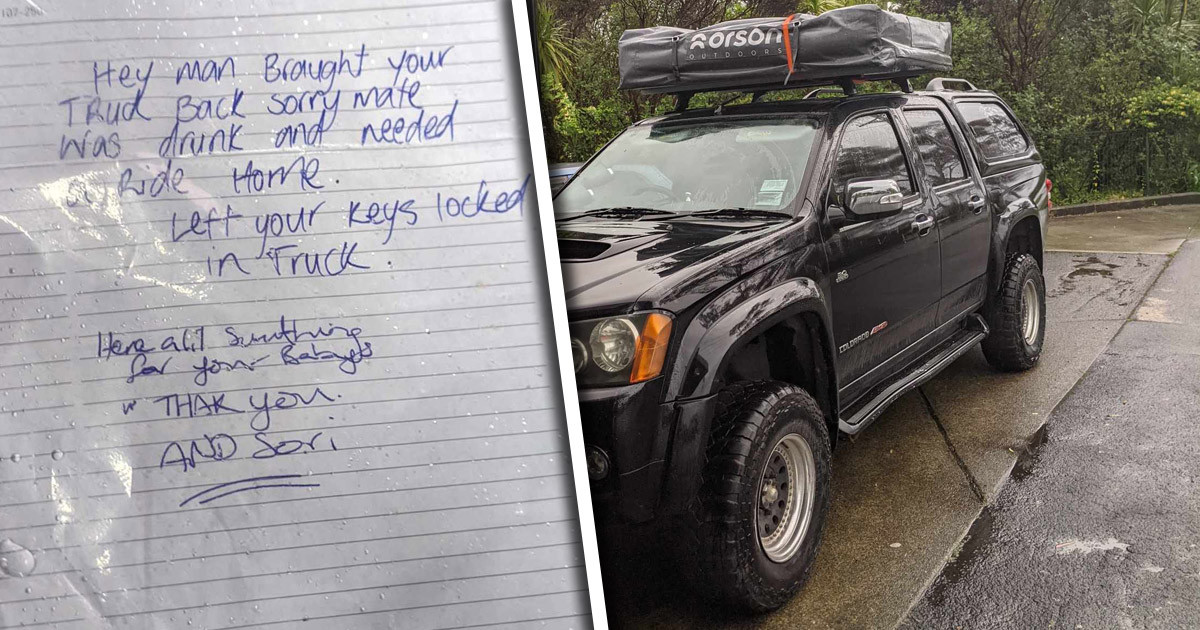 107-290
Hey man Braught your
TRuck Back sorry mate
was drunk and needed
a Ride Home.
Left your keys locked
in Truck.
Here a lil Sumthing
for your Babages
" THAK you.
AND Sori
orson
OUTDOORS
COLORADO